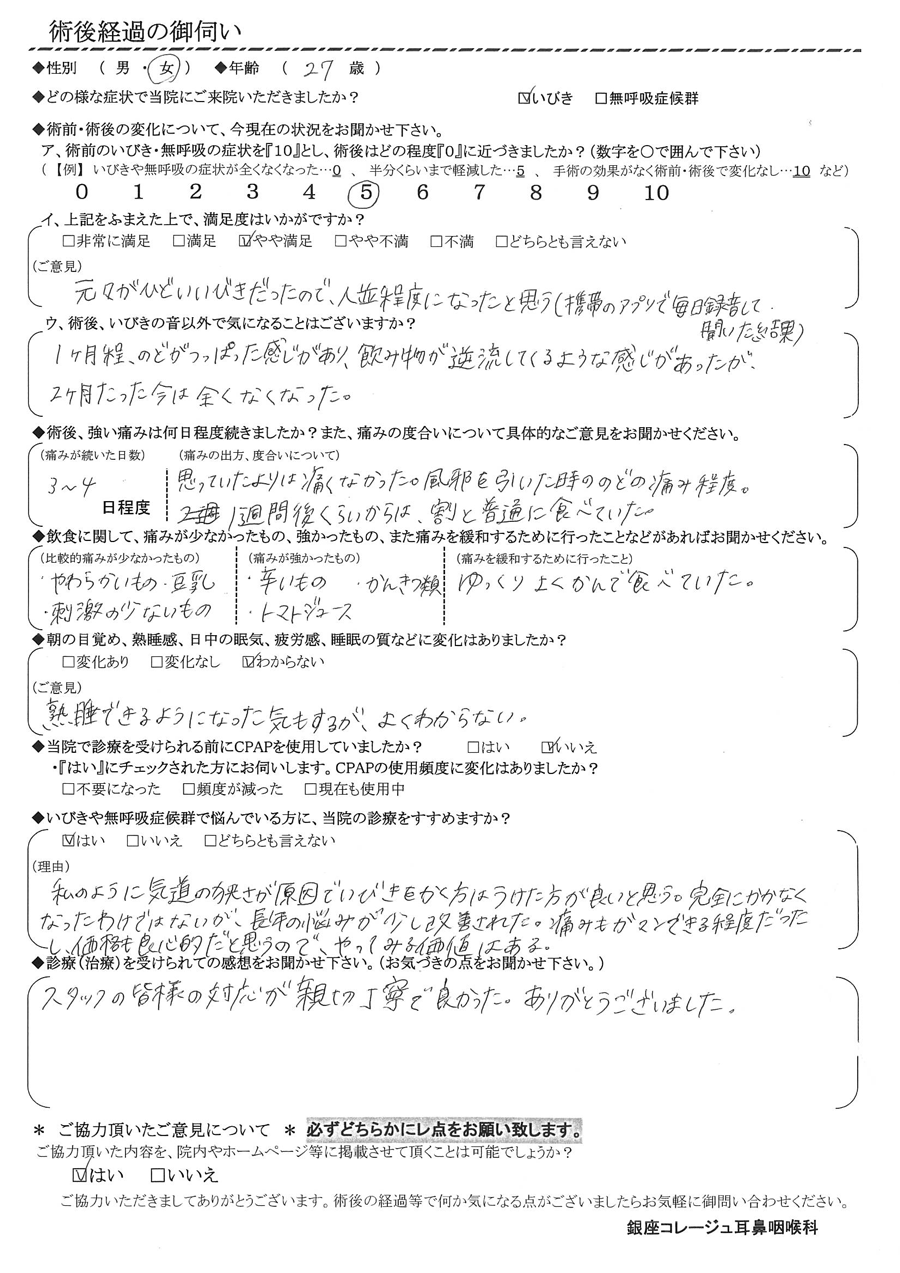 術後経過の御伺い
◆性別 ( 男 ・ 女 ) ◆年齢 ( 27 歳 )
◆どの様な症状で当院にご来院いただきましたか? ☑いびき □無呼吸症候群
◆術前・術後の変化について、今現在の状況をお聞かせ下さい。
ア、術前のいびき・無呼吸の症状を『10』とし、術後はどの程度『0』に近づきましたか?(数字を○で囲んで下さい)
(【例】いびきや無呼吸の症状が全くなくなった…0 、 半分くらいまで軽減した…5 、 手術の効果がなく術前・術後で変化なし…10 など)
0 1 2 3 4 5 6 7 8 9 10
イ、上記をふまえた上で、満足度はいかがですか?
□非常に満足 □満足 ☑やや満足 □やや不満 □不満 □どちらとも言えない
(ご意見)
元々がひどいいびきだったので、人並程度になったと思う(携帯のアプリで毎日録音して
聞いた結果)
ウ、術後、いびきの音以外で気になることはございますか?
1ヶ月程、のどがつっぱった感じがあり、飲み物が逆流してくるような感じがあったが、
2ヶ月たった今は全くなくなった。
◆術後、強い痛みは何日程度続きましたか?また、痛みの度合いについて具体的なご意見をお聞かせください。
(痛みが続いた日数) (痛みの出方、度合いについて)
3~4 日程度
思っていたよりは痛くなかった。風邪を引いた時ののどの痛み程度。
1週間後くらいからは、割と普通に食べていた。
◆飲食に関して、痛みが少なかったもの、強かったもの、また痛みを緩和するために行ったことなどがあればお聞かせください。
(比較的痛みが少なかったもの) (痛みが強かったもの) (痛みを緩和するために行ったこと)
・やわらかいもの・豆乳 ・辛いもの ・かんきつ類 ゆっくりよくかんで食べていた。
・刺激の少ないもの ・トマトジュース
◆朝の目覚め、熟睡感、日中の眠気、疲労感、睡眠の質などに変化はありましたか?
□変化あり □変化なし ☑わからない
(ご意見)
熟睡できるようになった気もするが、よくわからない。
◆当院で診療を受けられる前にCPAPを使用していましたか? □はい ☑いいえ
・『はい』にチェックされた方にお伺いします。CPAPの使用頻度に変化はありましたか?
□不要になった □頻度が減った □現在も使用中
◆いびきや無呼吸症候群で悩んでいる方に、当院の診療をすすめますか?
☑はい □いいえ □どちらとも言えない
(理由)
私のように気道の狭さが原因でいびきをかく方はうけた方が良いと思う。完全にかかなく
なったわけではないが、長年の悩みが少し改善された。痛みもガマンできる程度だった
し、価格も良心的だと思うので、やってみる価値はある。
◆診療(治療)を受けられての感想をお聞かせ下さい。(お気づきの点をお聞かせ下さい。)
スタッフの皆様の対応が親切丁寧で良かった。ありがとうございました。
＊ ご協力頂いたご意見について ＊ 必ずどちらかにレ点をお願い致します。
ご協力頂いた内容を、院内やホームページ等に掲載させて頂くことは可能でしょうか?
☑はい □いいえ
ご協力いただきましてありがとうございます。術後の経過等で何か気になる点がございましたらお気軽に御問い合わせください。
銀座コレージュ耳鼻咽喉科